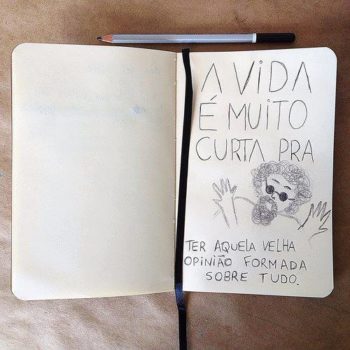 A ViDA
É MUiTO
CURTA PRA
TER AQUELA VELHA
OPINIÃO FORMADA
SOBRE TUDO.